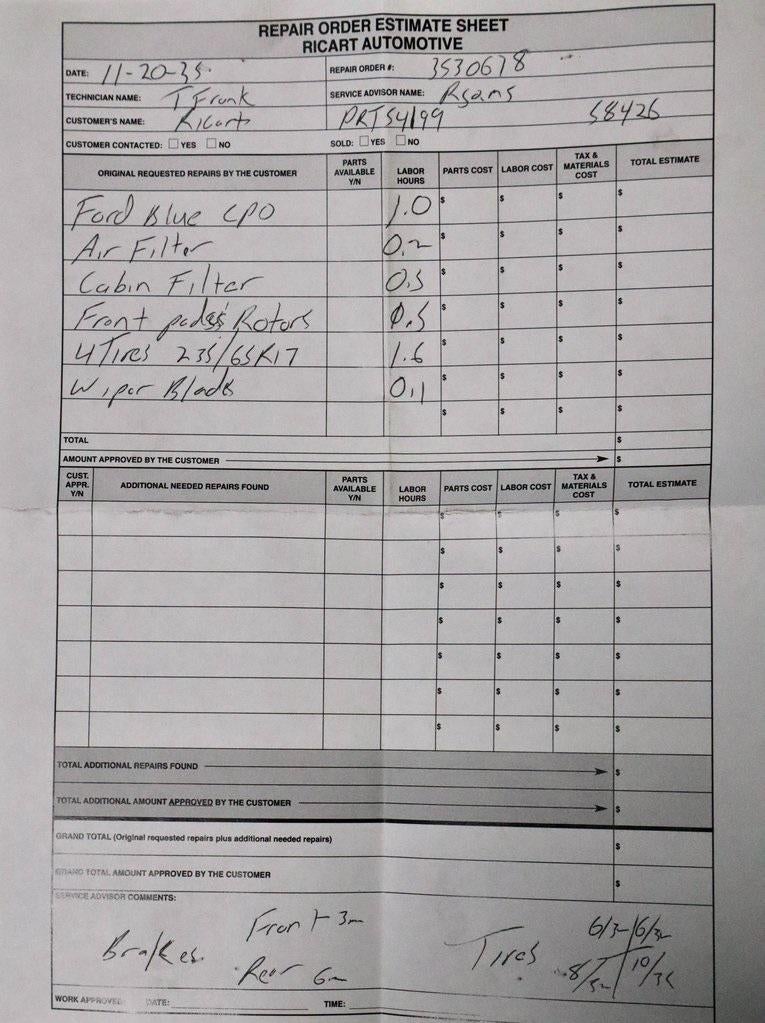 REPAIR ORDER ESTIMATE SHEET
RICART AUTOMOTIVE
DATE: 11-20-25 REPAIR ORDER #: 3530678
TECHNICIAN NAME: T Frank SERVICE ADVISOR NAME: Rsams
CUSTOMER'S NAME: Ricart PRT54199 58426
CUSTOMER CONTACTED: YES NO SOLD: YES NO
ORIGINAL REQUESTED REPAIRS BY THE CUSTOMER PARTS AVAILABLE Y/N LABOR HOURS PARTS COST LABOR COST TAX & MATERIALS COST TOTAL ESTIMATE
Ford Blue CPO 1.0 $ $ $ $
Air Filter 0.2 $ $ $ $
Cabin Filter 0.3 $ $ $ $
Front pads Rotors 0.5 $ $ $ $
4 Tires 235/65R17 1.6 $ $ $ $
Wiper Blades 0.1 $ $ $ $
$ $ $ $
TOTAL $
AMOUNT APPROVED BY THE CUSTOMER $
CUST. APPR. Y/N ADDITIONAL NEEDED REPAIRS FOUND PARTS AVAILABLE Y/N LABOR HOURS PARTS COST LABOR COST TAX & MATERIALS COST TOTAL ESTIMATE
$ $ $ $
$ $ $ $
$ $ $ $
$ $ $ $
$ $ $ $
$ $ $ $
$ $ $ $
TOTAL ADDITIONAL REPAIRS FOUND $
TOTAL ADDITIONAL AMOUNT APPROVED BY THE CUSTOMER $
GRAND TOTAL (Original requested repairs plus additional needed repairs) $
GRAND TOTAL AMOUNT APPROVED BY THE CUSTOMER $
SERVICE ADVISOR COMMENTS:
Front 3m 6/32 6/32
Brakes Tires
Rear 6m 8/32 10/32
WORK APPROVED: DATE: TIME: